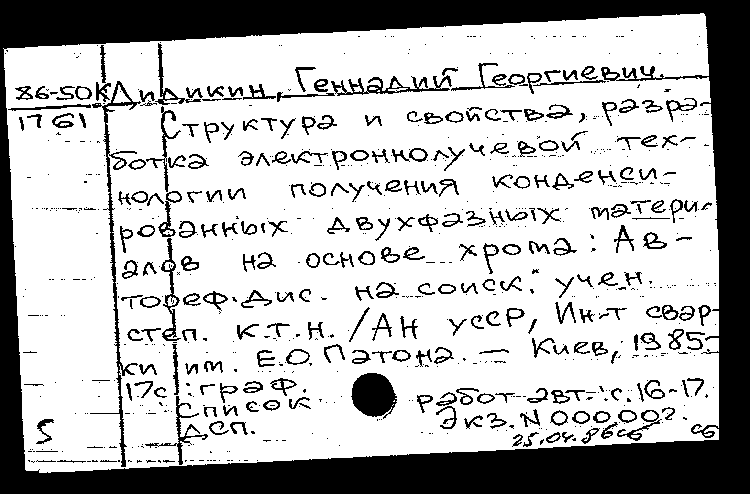 86-50К Дидикин, Геннадий Георгиевич.
1761 Структура и свойства, разра-
ботка электроннолучевой тех-
нологии получения конденси-
рованных двухфазных матери-
алов на основе хрома: Ав-
тореф. дис. на соиск. учен.
степ. к.т.н. /АН УССР, Ин-т свар-
ки им. Е.О. Патона. — Киев, 1985.-
17с.: граф.
Список работ авт.: с. 16-17.
ДСП. Экз. N 000002.
25.04.86 сб сб
5